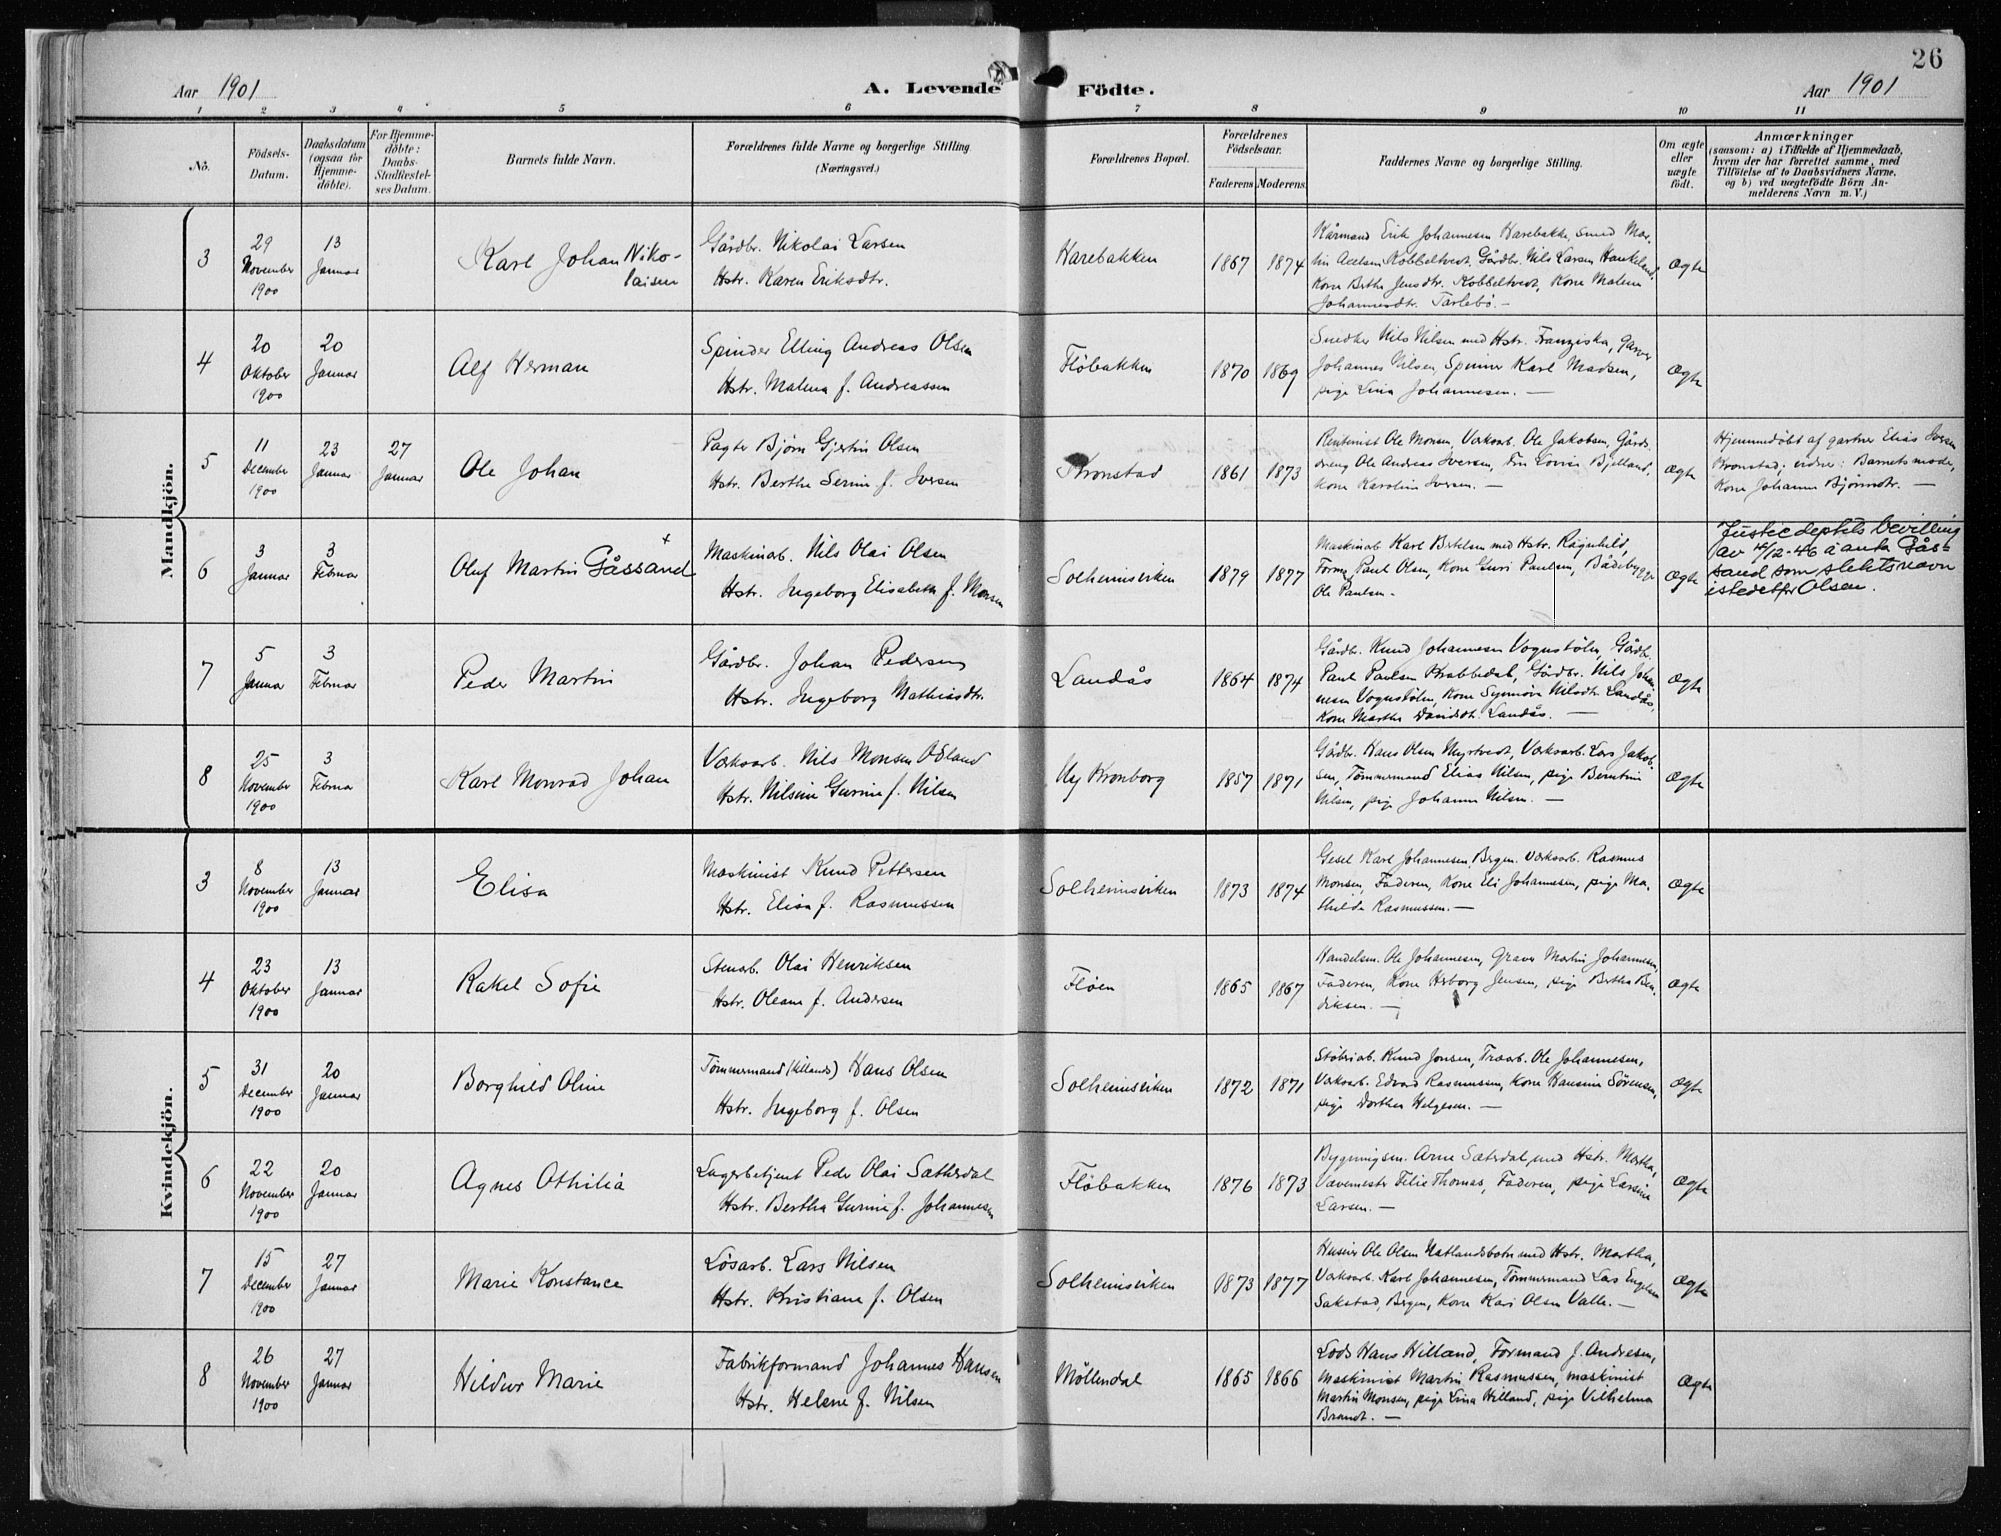 26
Aar 1901
A. Levende Födte.
Aar 1901
1 2 3 4 5 6 7 8 9 10 11
No.
Födsels-
Datum.
Daabsdatum
(ogsaa for
Hjemme-
döbte).
For Hjemme-
döbte:
Daabs-
Stadfæstel-
ses Datum.
Barnets fulde Navn.
Forældrenes fulde Navne og borgerlige Stilling
(Næringsvei.)
Forældrenes Bopæl.
Forældrenes
Födselsaar.
Faderens Moderens
Faddernes Navne og borgerlige Stilling.
Om ægte
eller
uægte
födt.
Anmærkninger
(saasom: a) i Tilfælde af Hjemmedaab,
hvem der har forrettet samme, med
Tilföielse af to Daabsvidners Navne,
og b) ved uægtefödte Börn An-
melderens Navn m. V.)
Mandkjön.
3
29
November
1900
13
Januar
Karl Johan Niko-
laisen
Gårdbr. Nikolai Larsen
Hstr. Karen Eriksdtr.
Harebakken
1867 1874
Kårmand Erik Johannesen Harebakke, smed Mar-
tin Axelsen Kobbeltvedt, Gårdbr. Nils Larsen Haukeland,
Kone Berthe Jensdtr. Kobbeltvedt, Kone Malene
Johannesdtr. Tarlebö. —
Ægte
4
20
Oktober
1900
20
Januar
Alf Herman
Spinder Elling Andreas Olsen
Hstr. Malena f. Andreassen
Flöbakken
1870 1869
Snedker Nils Nilsen med Hstr. Franziska, Garver
Johannes Nilsen, Spinner Karl Madsen,
pige Lina Johannesen. —
Ægte
5
11
December
1900
23
Januar
27
Januar
Ole Johan
Pagter Björn Gjertin Olsen
Hstr. Berthe Serine f. Iversen
Kronstad
1861 1873
Rentenist Ole Monsen, Værksarb. Ole Jakobsen, Gårds-
dreng Ole Andreas Iversen, Frk Lovise Bjelland,
Kone Karoline Iversen. —
Ægte
Hjemmedöbt af gartner Elias Iversen
Kronstad; vidner: Barnets moder,
Kone Johanne Björnsdtr. —
6
3
Januar
3
Februar
Oluf Martin Gåssand +
Maskinarb. Nils Olai Olsen
Hstr. Ingeborg Elisabeth f. Monsen
Solheimsviken
1879 1877
Maskinarb Karl Bertelsen med Hstr. Ragnhild,
Former Paul Olsen, Kone Guri Paulsen, Bådebygger
Ole Paulsen. -
Ægte
Justecdeptets bevilling
av 4/12-46 å anta Gås-
sand som slektsnavn
istedetfor Olsen.
7
5
Januar
3
Februar
Peder Martin
Gårdbr. Johan Pedersen
Hstr. Ingeborg Mathiasdtr.
Landås
1864 1874
Gårdbr. Knud Johannesen Vognstölen, Gårdbr.
Paul Paulsen Krabbedal, Gårdbr. Nils Johan-
nesen Vognstölen, Kone Synnöve Nilsdtr. Landås,
Kone Marthe Davidsdtr. Landås. —
Ægte
8
25
November
1900
3
Februar
Karl Monrad Johan
Værksarb. Nils Monsen Ödland
Hstr. Nilsine Gurine f. Nilsen
Ny Kronborg
1857 1871
Gårdbr. Hans Olsen Myrtvedt, Værksarb. Lars Jakob-
sen, Tömmermand Elias Nilsen, pige Berntine
Nilsen, pige Johanne Nilsen. —
Ægte
Kvindekjön.
3
8
November
1900
13
Januar
Elisa
Maskinist Knud Pettersen
Hstr. Elisa f. Rasmussen
Solheimsviken
1873 1874
Gesel Karl Johannesen, Bergen. Værksarb. Rasmus
Monsen, Faderen, Kone Eli Johannesen, pige Ma-
thilde Rasmussen. —
Ægte
4
23
Oktober
1900
13
Januar
Rakel Sofie
Stenarb. Olai Henriksen
Hstr. Oleane f. Andersen
Flöen
1865 1867
Handelsm. Ole Johannesen, Graver Martin Johannesen,
Faderen, Kone Herborg Jensen, pige Bertha Ben-
diksen. —
Ægte
5
31
December
1900
20
Januar
Borghild Oline
Tömmermand (tillands) Hans Olsen
Hstr. Ingeborg f. Olsen
Solheimsviken
1872 1871
Stöberiarb. Knud Jonsen, Træarb. Ole Johannesen,
Værksarb. Edvard Rasmussen, Kone Hansine Sörensen,
pige Dorthea Helgesen. —
Ægte
6
22
November
1900
20
Januar
Agnes Othilia
Lagerbetjent Peder Olai Sætherdal
Hstr. Bertha Gurine f. Johannesen
Flöbakken
1876 1873
Bygningsm. Arne Sæterdal, med Hstr. Martha,
Vævemester Felix Thomas, Faderen, pige Larsine
Larsen. —
Ægte
7
15
December
1900
27
Januar
Marie Konstance
Lösarb. Lars Nilsen
Hstr. Kristiane f. Olsen
Solheimsviken
1873 1877
Huseier Ole Olsen Natlandsbotn med Hstr. Martha,
Værksarb. Karl Johannesen, Tömmermand Lars Engelsen
Sakstad, Bergen, Kone Kari Olsen Valle. —
Ægte
8
26
November
1900
27
Januar
Hildur Marie
Fabrikformand Johannes Hansen
Hstr. Helene f. Nilsen
Möllendal
1865 1866
Lods Hans Hilland, Formand J. Andresen,
Maskinist Martin Rasmussen, maskinist
Martin Monsen, pige Lina Hilland, pige Vilhelmina
Brandt. —
Ægte